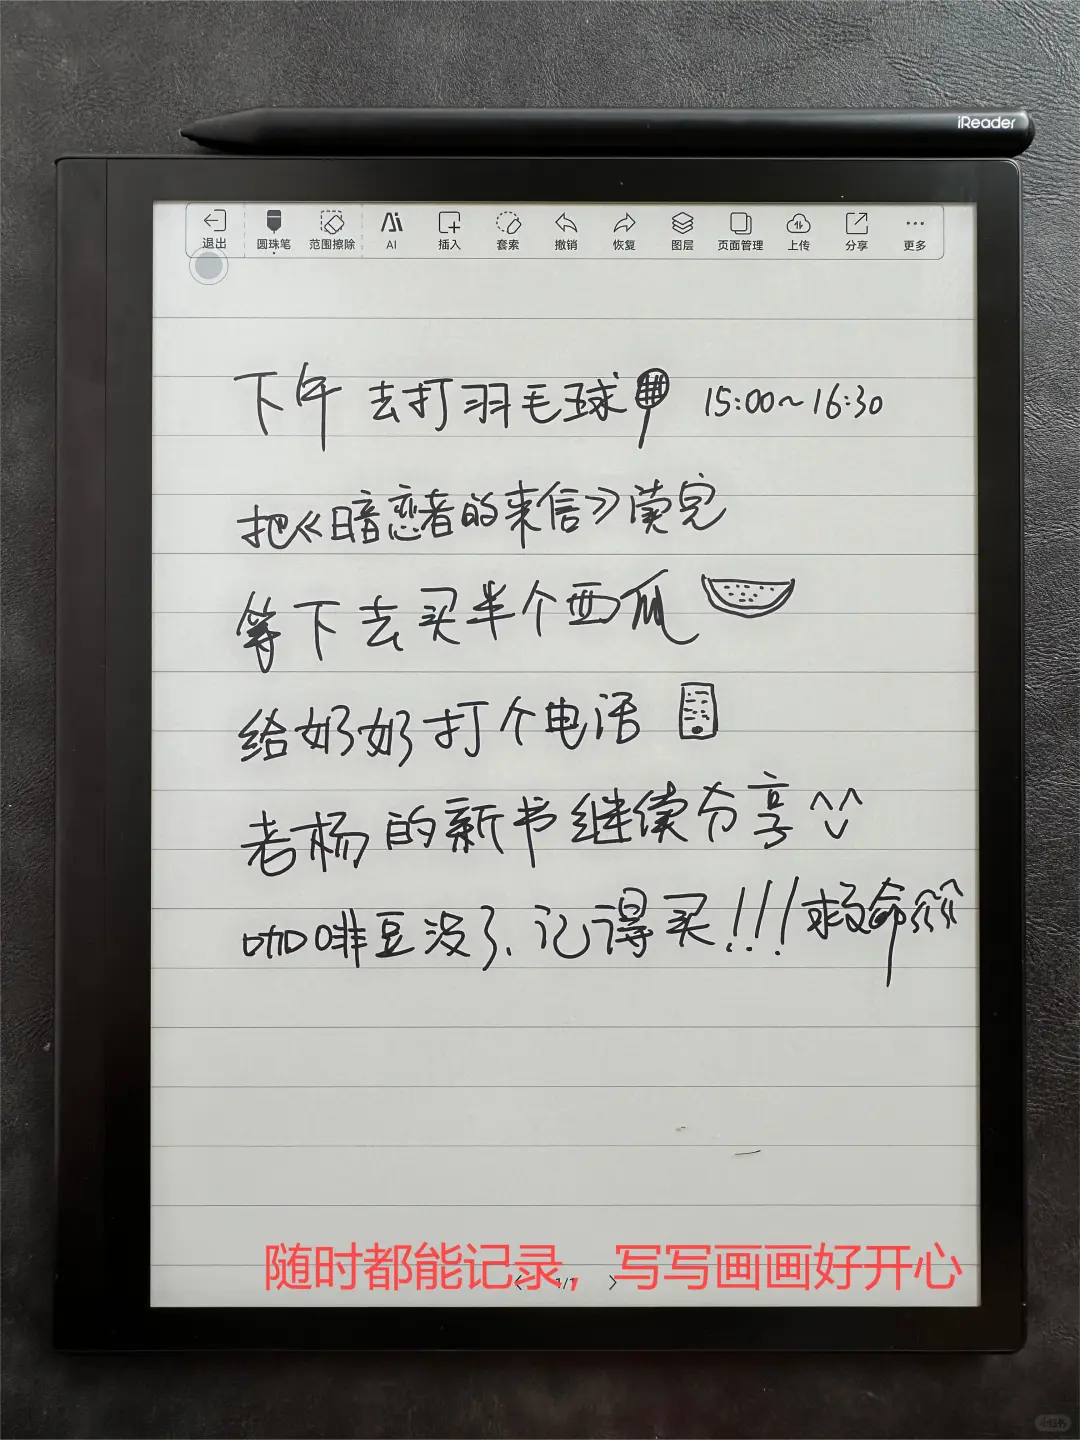 iReader
退出 圆珠笔 范围擦除 AI 插入 套索 撤销 恢复 图层 页面管理 上传 分享 更多
下午 去打羽毛球 15:00~16:30
把《暗恋者的来信》读完
等下去买半个西瓜
给奶奶打个电话
老杨的新书继续分享
咖啡豆没了、记得买!!!救命
随时都能记录，写写画画好开心
1/1
小红书